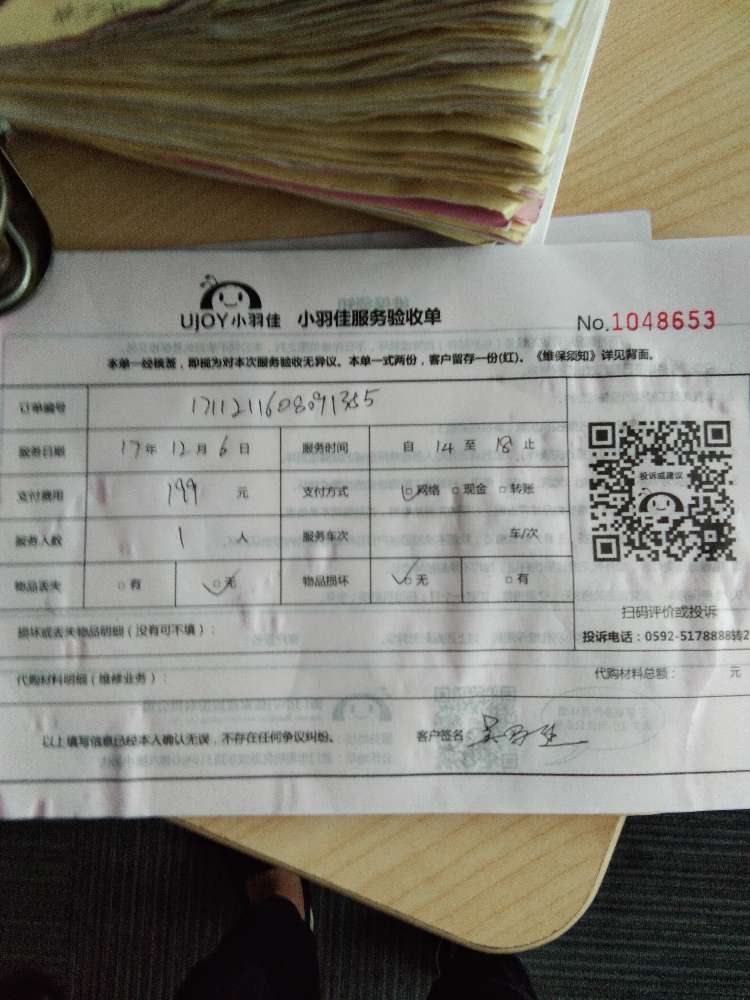 UJOY小羽佳 小羽佳服务验收单 No.1048653
本单一经横签，即视为对本次服务验收无异议。本单一式两份，客户留存一份(红)。《维保须知》详见背面。
订单编号
服务日期 17年12月6日 服务时间 自14至18止
支付费用 199元 支付方式 网络 现金 转账
服务人数 1人 服务车次 车/次
物品丢失 有 无 物品损坏 无 有
损坏或丢失物品明细（没有可不填）：
代购材料明细（维修业务）： 代购材料总额： 元
以上填写信息已经本人确认无误，不存在任何争议纠纷。 客户签名
投诉或建议
扫码评价或投诉
投诉电话：0592-5178888转2